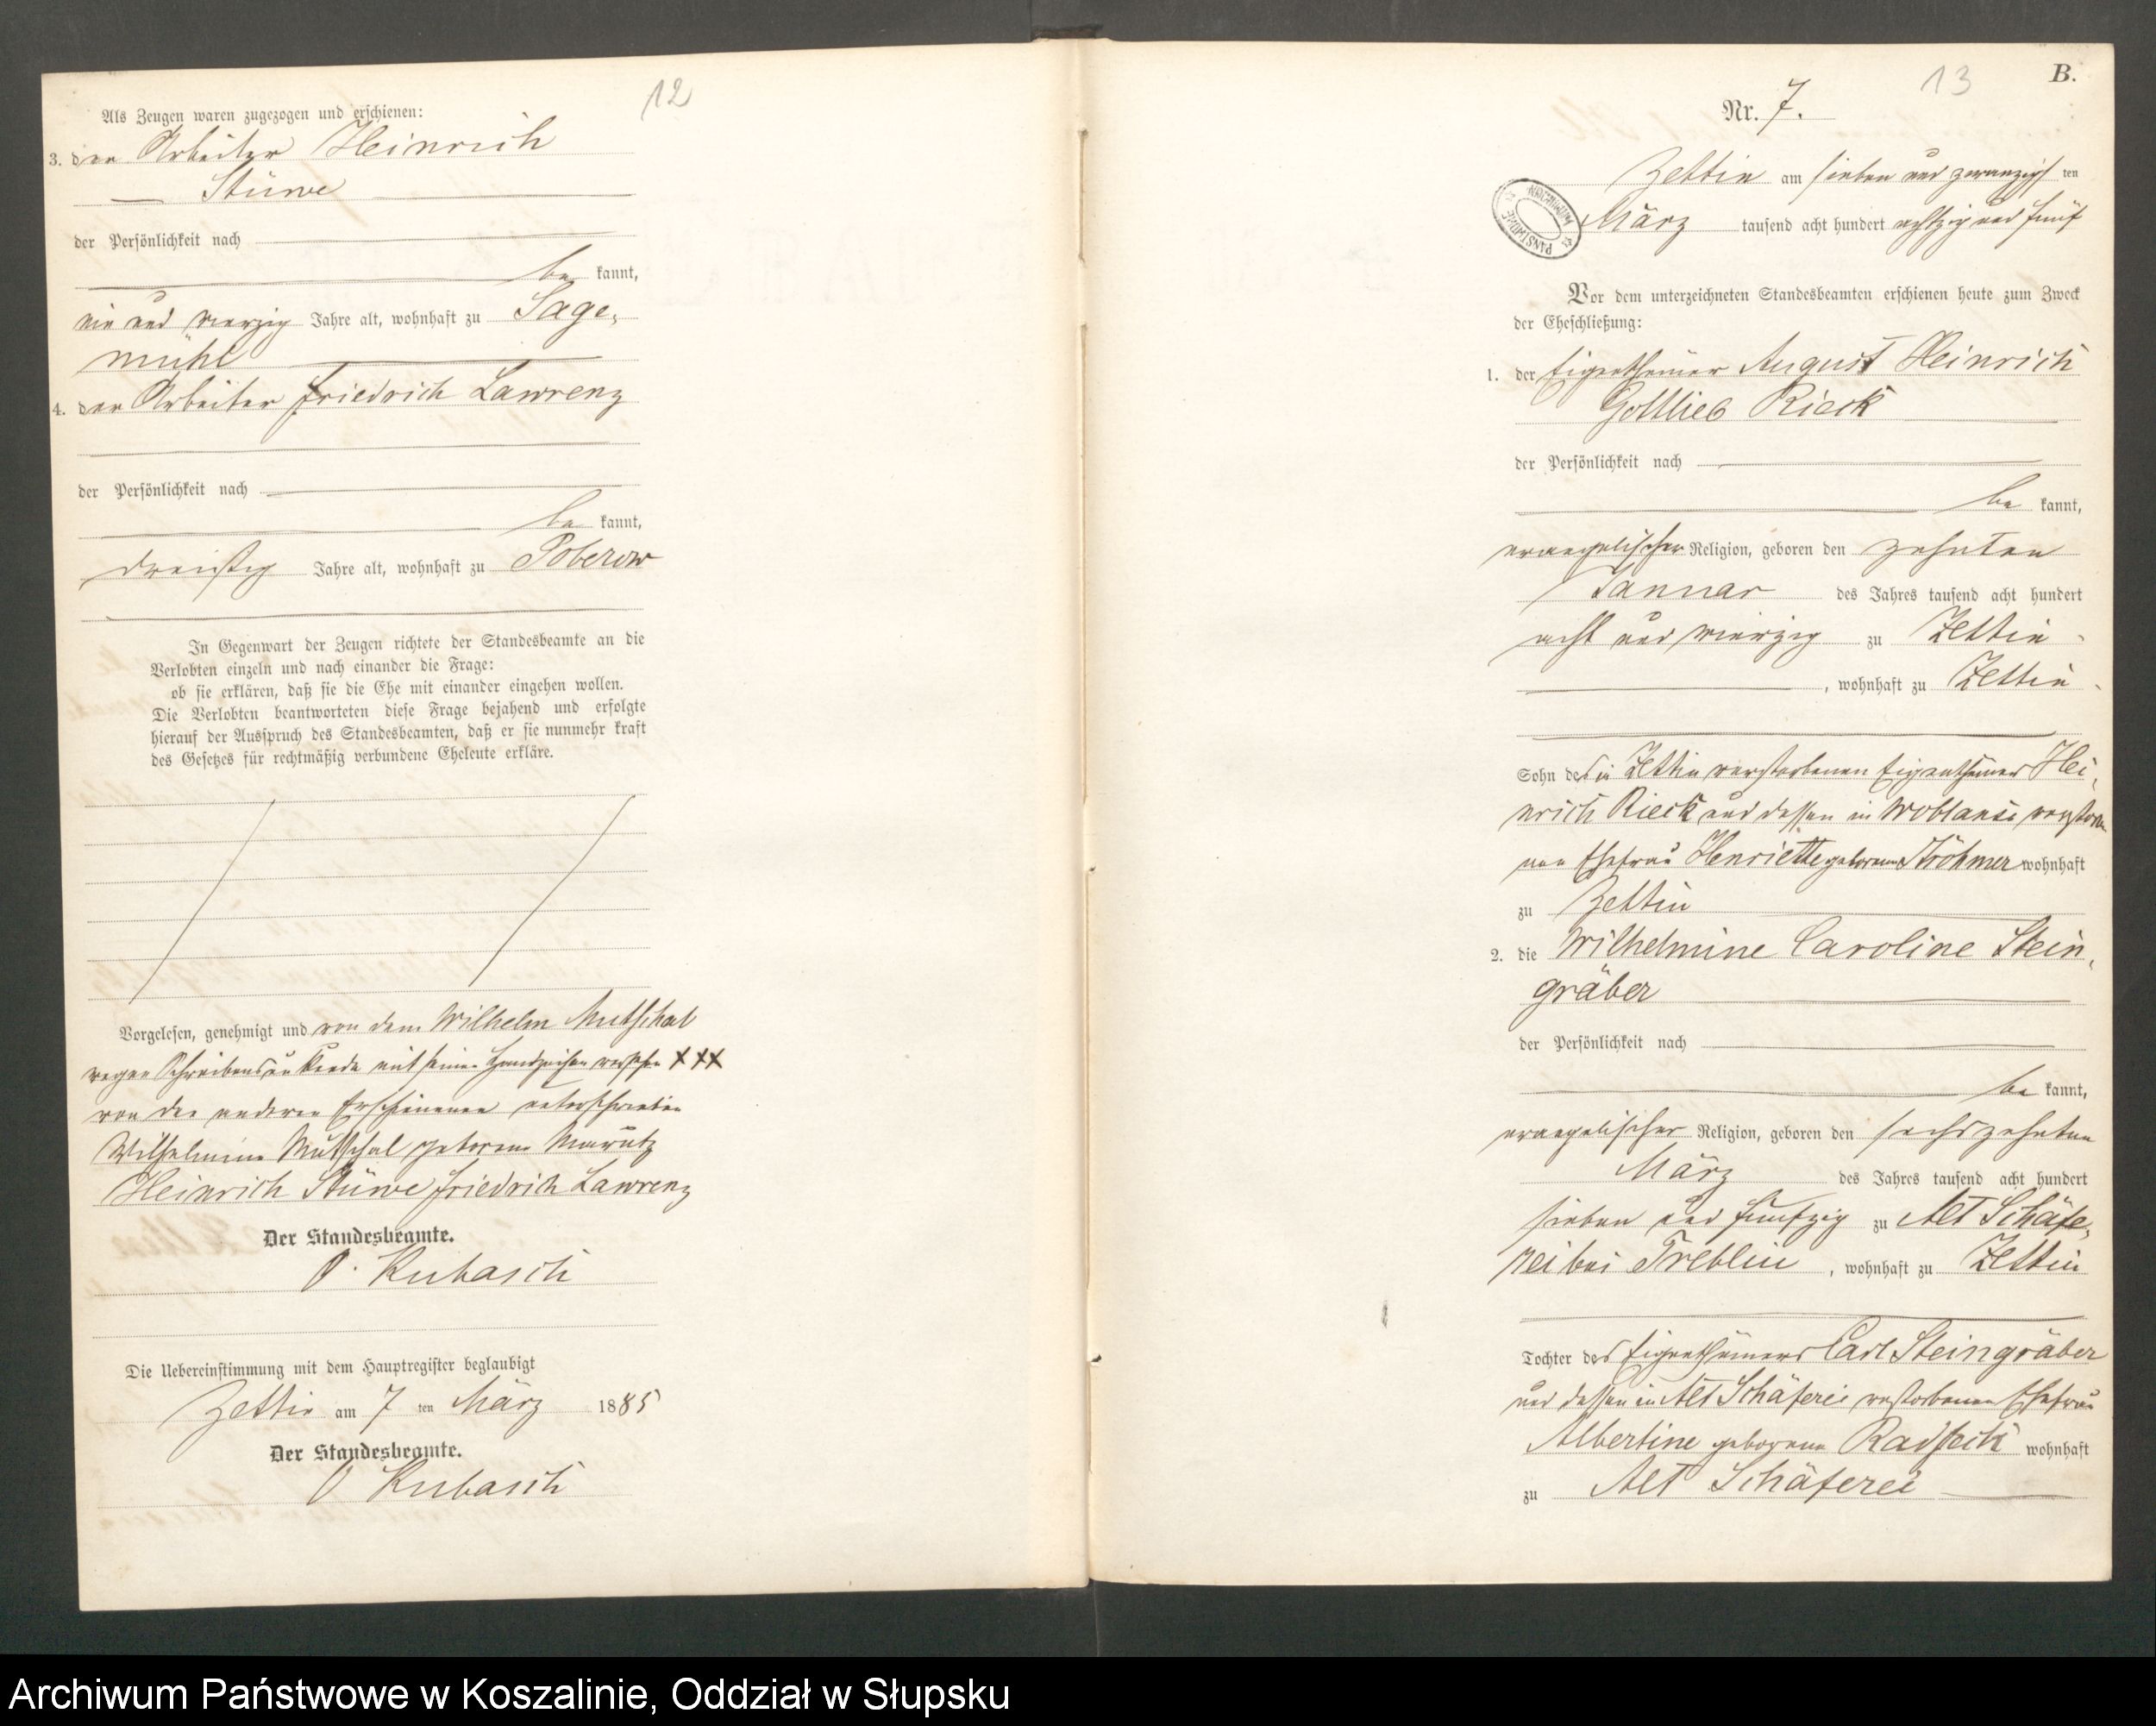 12
Als Zeugen waren zugezogen und erschienen:
3. der Arbeiter Heinrich
Stüwe
der Persönlichkeit nach
be kannt,
ein und vierzig Jahre alt, wohnhaft zu Sage,
mühl
4. der Arbeiter Friedrich Lawrenz
der Persönlichkeit nach
be kannt,
dreißig Jahre alt, wohnhaft zu Poberow
In Gegenwart der Zeugen richtete der Standesbeamte an die
Verlobten einzeln und nach einander die Frage:
ob sie erklären, daß sie die Ehe mit einander eingehen wollen.
Die Verlobten beantworteten diese Frage bejahend und erfolgte
hierauf der Ausspruch des Standesbeamten, daß er sie nunmehr kraft
des Gesetzes für rechtmäßig verbundene Eheleute erkläre.
Vorgelesen, genehmigt und von dem Wilhelm Mutschal
wegen Schreibensunkunde mit seinem Handzeichen versehen XXX
von den anderen Erschienenen unterschrieben
Wilhelmine Mutschal geborene
Heinrich Stüwe Friedrich Lawrenz
Der Standesbeamte.
O. Kubasch
Die Uebereinstimmung mit dem Hauptregister beglaubigt
Zettin am 7 ten März 1885
Der Standesbeamte.
O Kubasch
13
B.
Nr. 7.
Zettin am sieben und zwanzigs ten
März tausend acht hundert achtzig und fünf
Vor dem unterzeichneten Standesbeamten erschienen heute zum Zweck
der Eheschließung:
1. der Eigenthümer August Heinrich
Gottlieb Rieck
der Persönlichkeit nach
be kannt,
evangelischer Religion, geboren den zehnten
Januar des Jahres tausend acht hundert
acht und vierzig zu Zettin
, wohnhaft zu Zettin
Sohn des in Zettin verstorbenen Eigenthümer Hei,
nrich Rieck und dessen in Woblanse verstorbe
nen Ehefrau Henriette geborene Ströhmer wohnhaft
zu Zettin
2. die Wilhelmine Caroline Stein,
gräber
der Persönlichkeit nach
be kannt,
evangelischer Religion, geboren den sechszehnten
März des Jahres tausend acht hundert
sieben und fünfzig zu Alt Schäfe,
rei bei Treblin, wohnhaft zu Zettin
Tochter des Eigenthümers Carl Steingräber
und dessen in Alt Schäferei verstorbenen Ehefrau
Albertine geborene Radseck wohnhaft
zu Alt Schäferei
Archiwum Państwowe w Koszalinie, Oddział w Słupsku